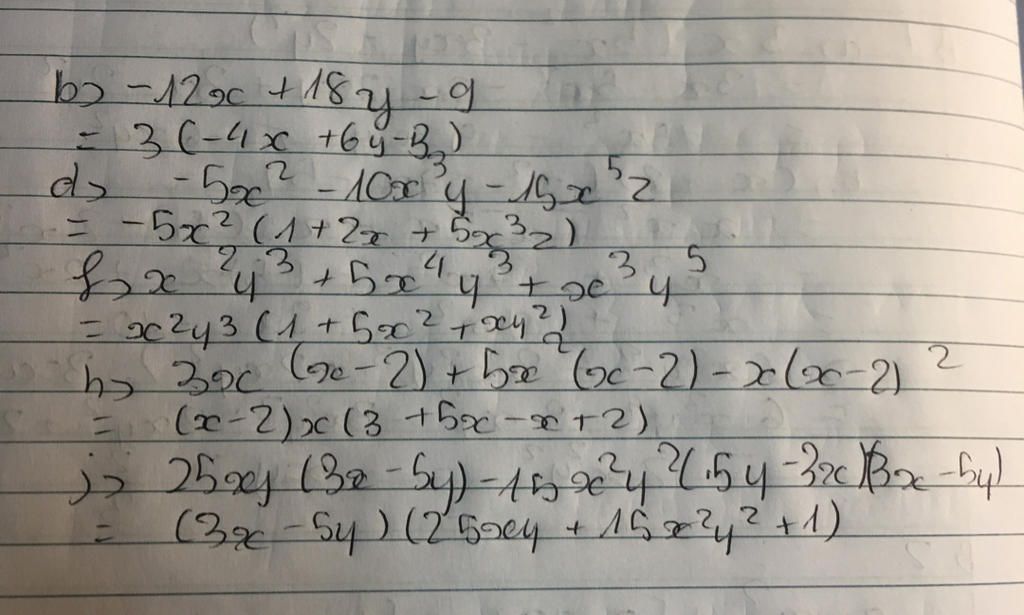 b> -12x + 18y - 9
= 3 (-4x + 6y - 3)
d> -5x² - 10x³y - 15x⁵z
= -5x² (1 + 2x + 5x³z)
f> x²y³ + 5x⁴y³ + x³y⁵
= x²y³ (1 + 5x² + xy²)
h> 3x (x-2) + 5x²(x-2) - x(x-2)²
= (x-2)x(3 + 5x - x + 2)
j> 25xy (3x - 5y) - 15x²y²(5y - 3x)(3x - 5y)
= (3x - 5y) (25xy + 15x²y² + 1)